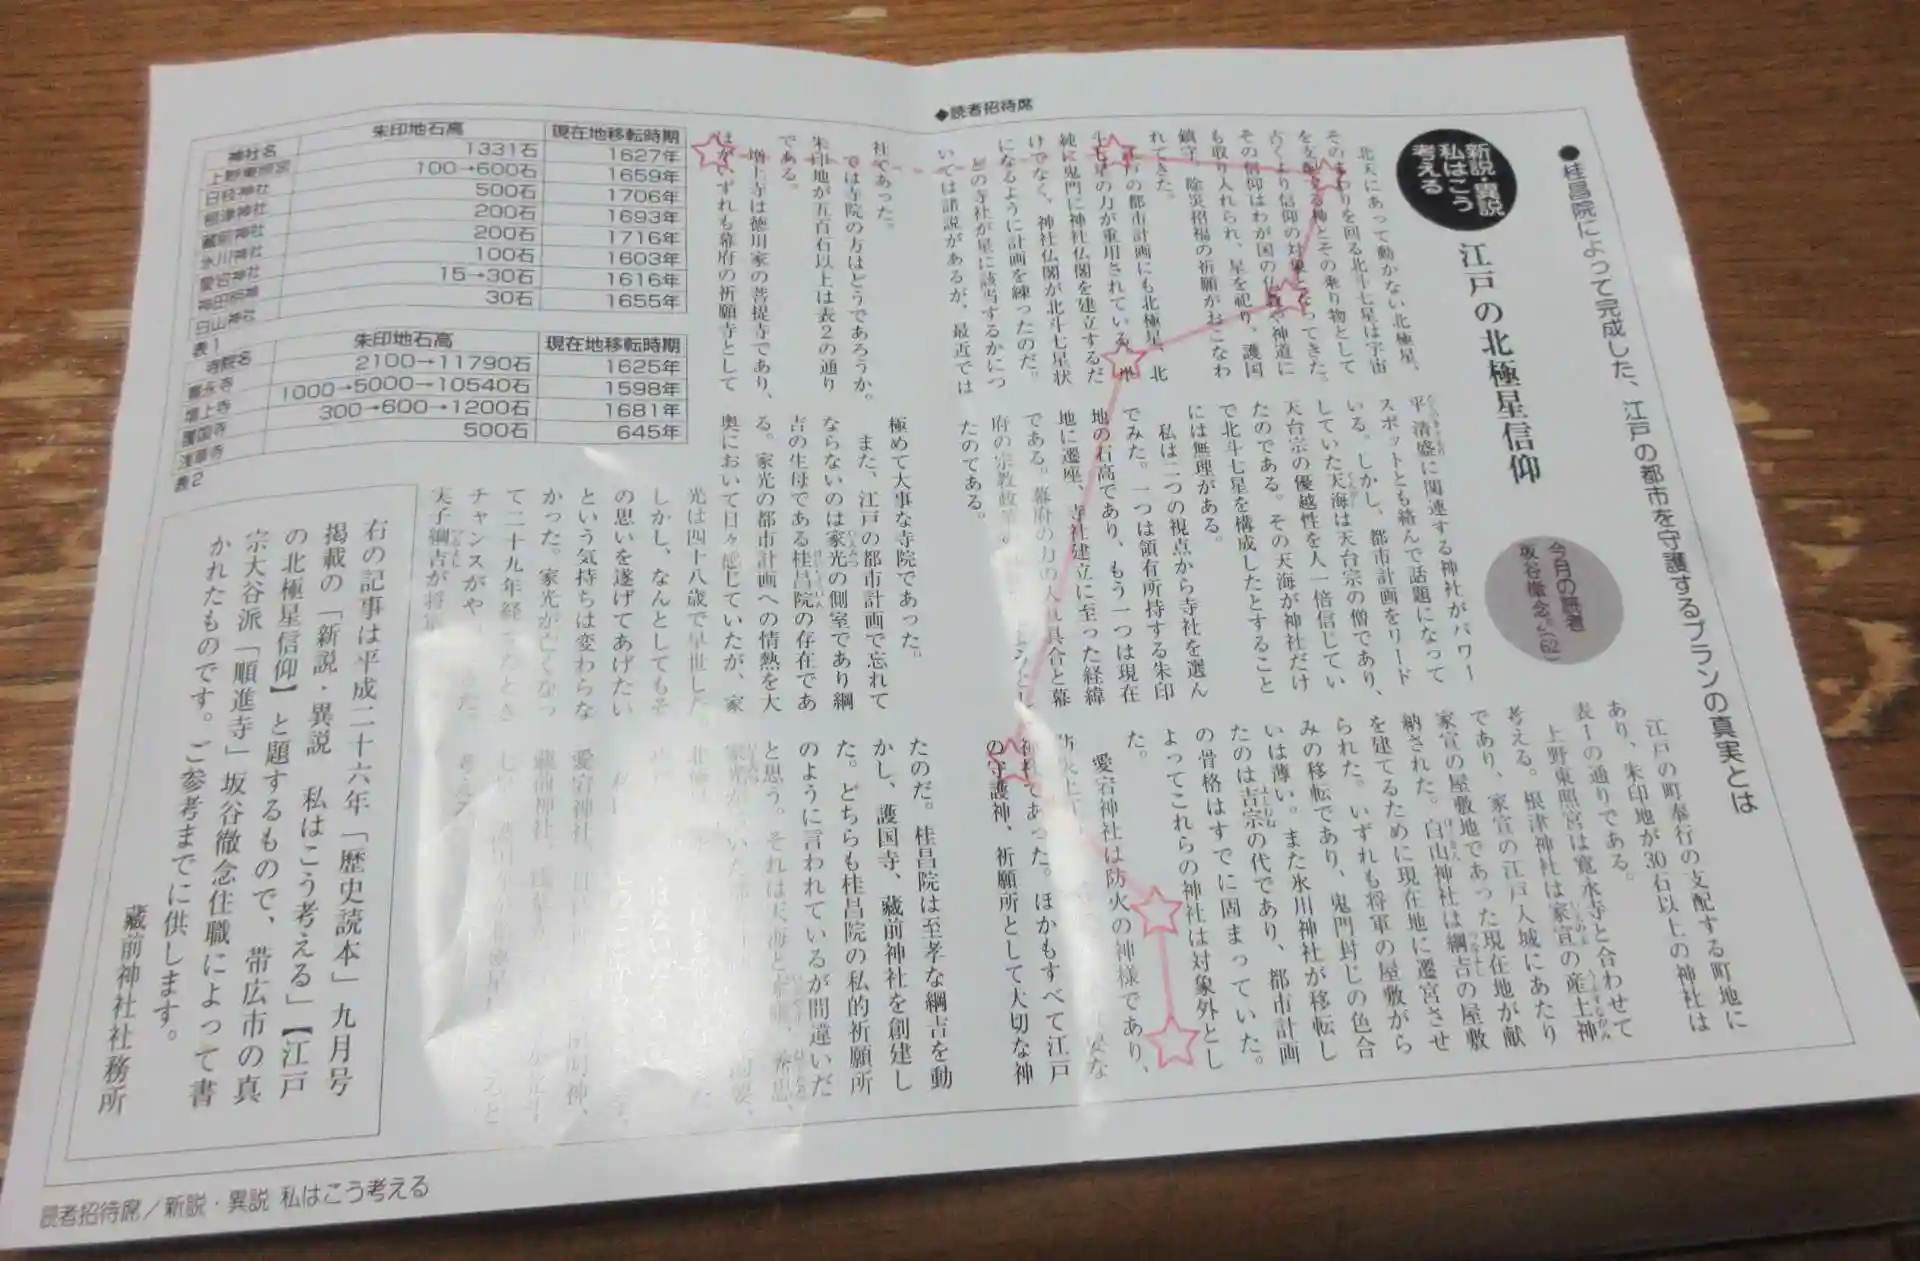 ◆読者招待席
●桂昌院によって完成した、江戸の都市を守護するプランの真実とは
新説・異説
私はこう
考える
江戸の北極星信仰
今月の読者
坂谷徹念さん(62)
北天にあって動かない北極星、
そのまわりを回る北斗七星は宇宙
を支配する神とその乗り物として
古くより信仰の対象となってきた。
その信仰はわが国の仏教や神道に
も取り入れられ、星を祀り、護国
鎮守、除災招福の祈願がおこなわ
れてきた。
江戸の都市計画にも北極星、北
斗七星の力が重用されている。単
純に鬼門に神社仏閣を建立するだ
けでなく、神社仏閣が北斗七星状
になるように計画を練ったのだ。
どの寺社が星に該当するかにつ
いては諸説があるが、最近では
平清盛に関連する神社がパワー
スポットとも絡んで話題になって
いる。しかし、都市計画をリード
していた天海は天台宗の僧であり、
天台宗の優越性を人一倍信じてい
たのである。その天海が神社だけ
で北斗七星を構成したとすること
には無理がある。
私は二つの視点から寺社を選ん
でみた。一つは領有所持する朱印
地の石高であり、もう一つは現在
地に遷座、寺社建立に至った経緯
である。幕府の力の入れ具合と幕
府の宗教政策
たのである。
江戸の町奉行の支配する町地に
あり、朱印地が30石以上の神社は
表1の通りである。
上野東照宮は寛永寺と合わせて
考える。根津神社は家宣の産土神
であり、家宣の江戸入城にあたり
家宣の屋敷地であった現在地が献
納された。白山神社は綱吉の屋敷
を建てるために現在地に遷宮させ
られた。いずれも将軍の屋敷がら
みの移転であり、鬼門封じの色合
いは薄い。また氷川神社が移転し
たのは吉宗の代であり、都市計画
の骨格はすでに固まっていた。
よってこれらの神社は対象外とし
た。
愛宕神社は防火の神様であり、
防火上
神社であった。ほかもすべて江戸
の守護神、祈願所として大切な神
社であった。
では寺院の方はどうであろうか。
朱印地が五百石以上は表2の通り
である。
増上寺は徳川家の菩提寺であり、
ほかいずれも幕府の祈願寺として
極めて大事な寺院であった。
また、江戸の都市計画で忘れて
ならないのは家光の側室であり綱
吉の生母である桂昌院の存在であ
る。家光の都市計画への情熱を大
奥において日々感じていたが、家
光は四十八歳で早世した。
しかし、なんとしてもそ
の思いを遂げてあげたい
という気持ちは変わらな
かった。家光が亡くなっ
て二十九年経ったとき
チャンスがや
実子綱吉が将軍
たのだ。桂昌院は至孝な綱吉を動
かし、護国寺、蔵前神社を創建し
た。どちらも桂昌院の私的祈願所
のように言われているが間違いだ
と思う。それは天海と家康、秀忠、
愛宕神社、
蔵前神社、
考える
神社名 朱印地石高 現在地移転時期
上野東照宮 1331石 1627年
日枝神社 100→600石 1659年
根津神社 500石 1706年
蔵前神社 200石 1693年
氷川神社 200石 1716年
愛宕神社 100石 1603年
神田明神 15→30石 1616年
白山神社 30石 1655年
表1
寺院名 朱印地石高 現在地移転時期
寛永寺 2100→11790石 1625年
増上寺 1000→5000→10540石 1598年
護国寺 300→600→1200石 1681年
浅草寺 500石 645年
表2
右の記事は平成二十六年「歴史読本」九月号
掲載の「新説・異説 私はこう考える」【江戸
の北極星信仰】と題するもので、帯広市の真
宗大谷派「順進寺」坂谷徹念住職によって書
かれたものです。ご参考までに供します。
蔵前神社社務所
読者招待席／新説・異説 私はこう考える